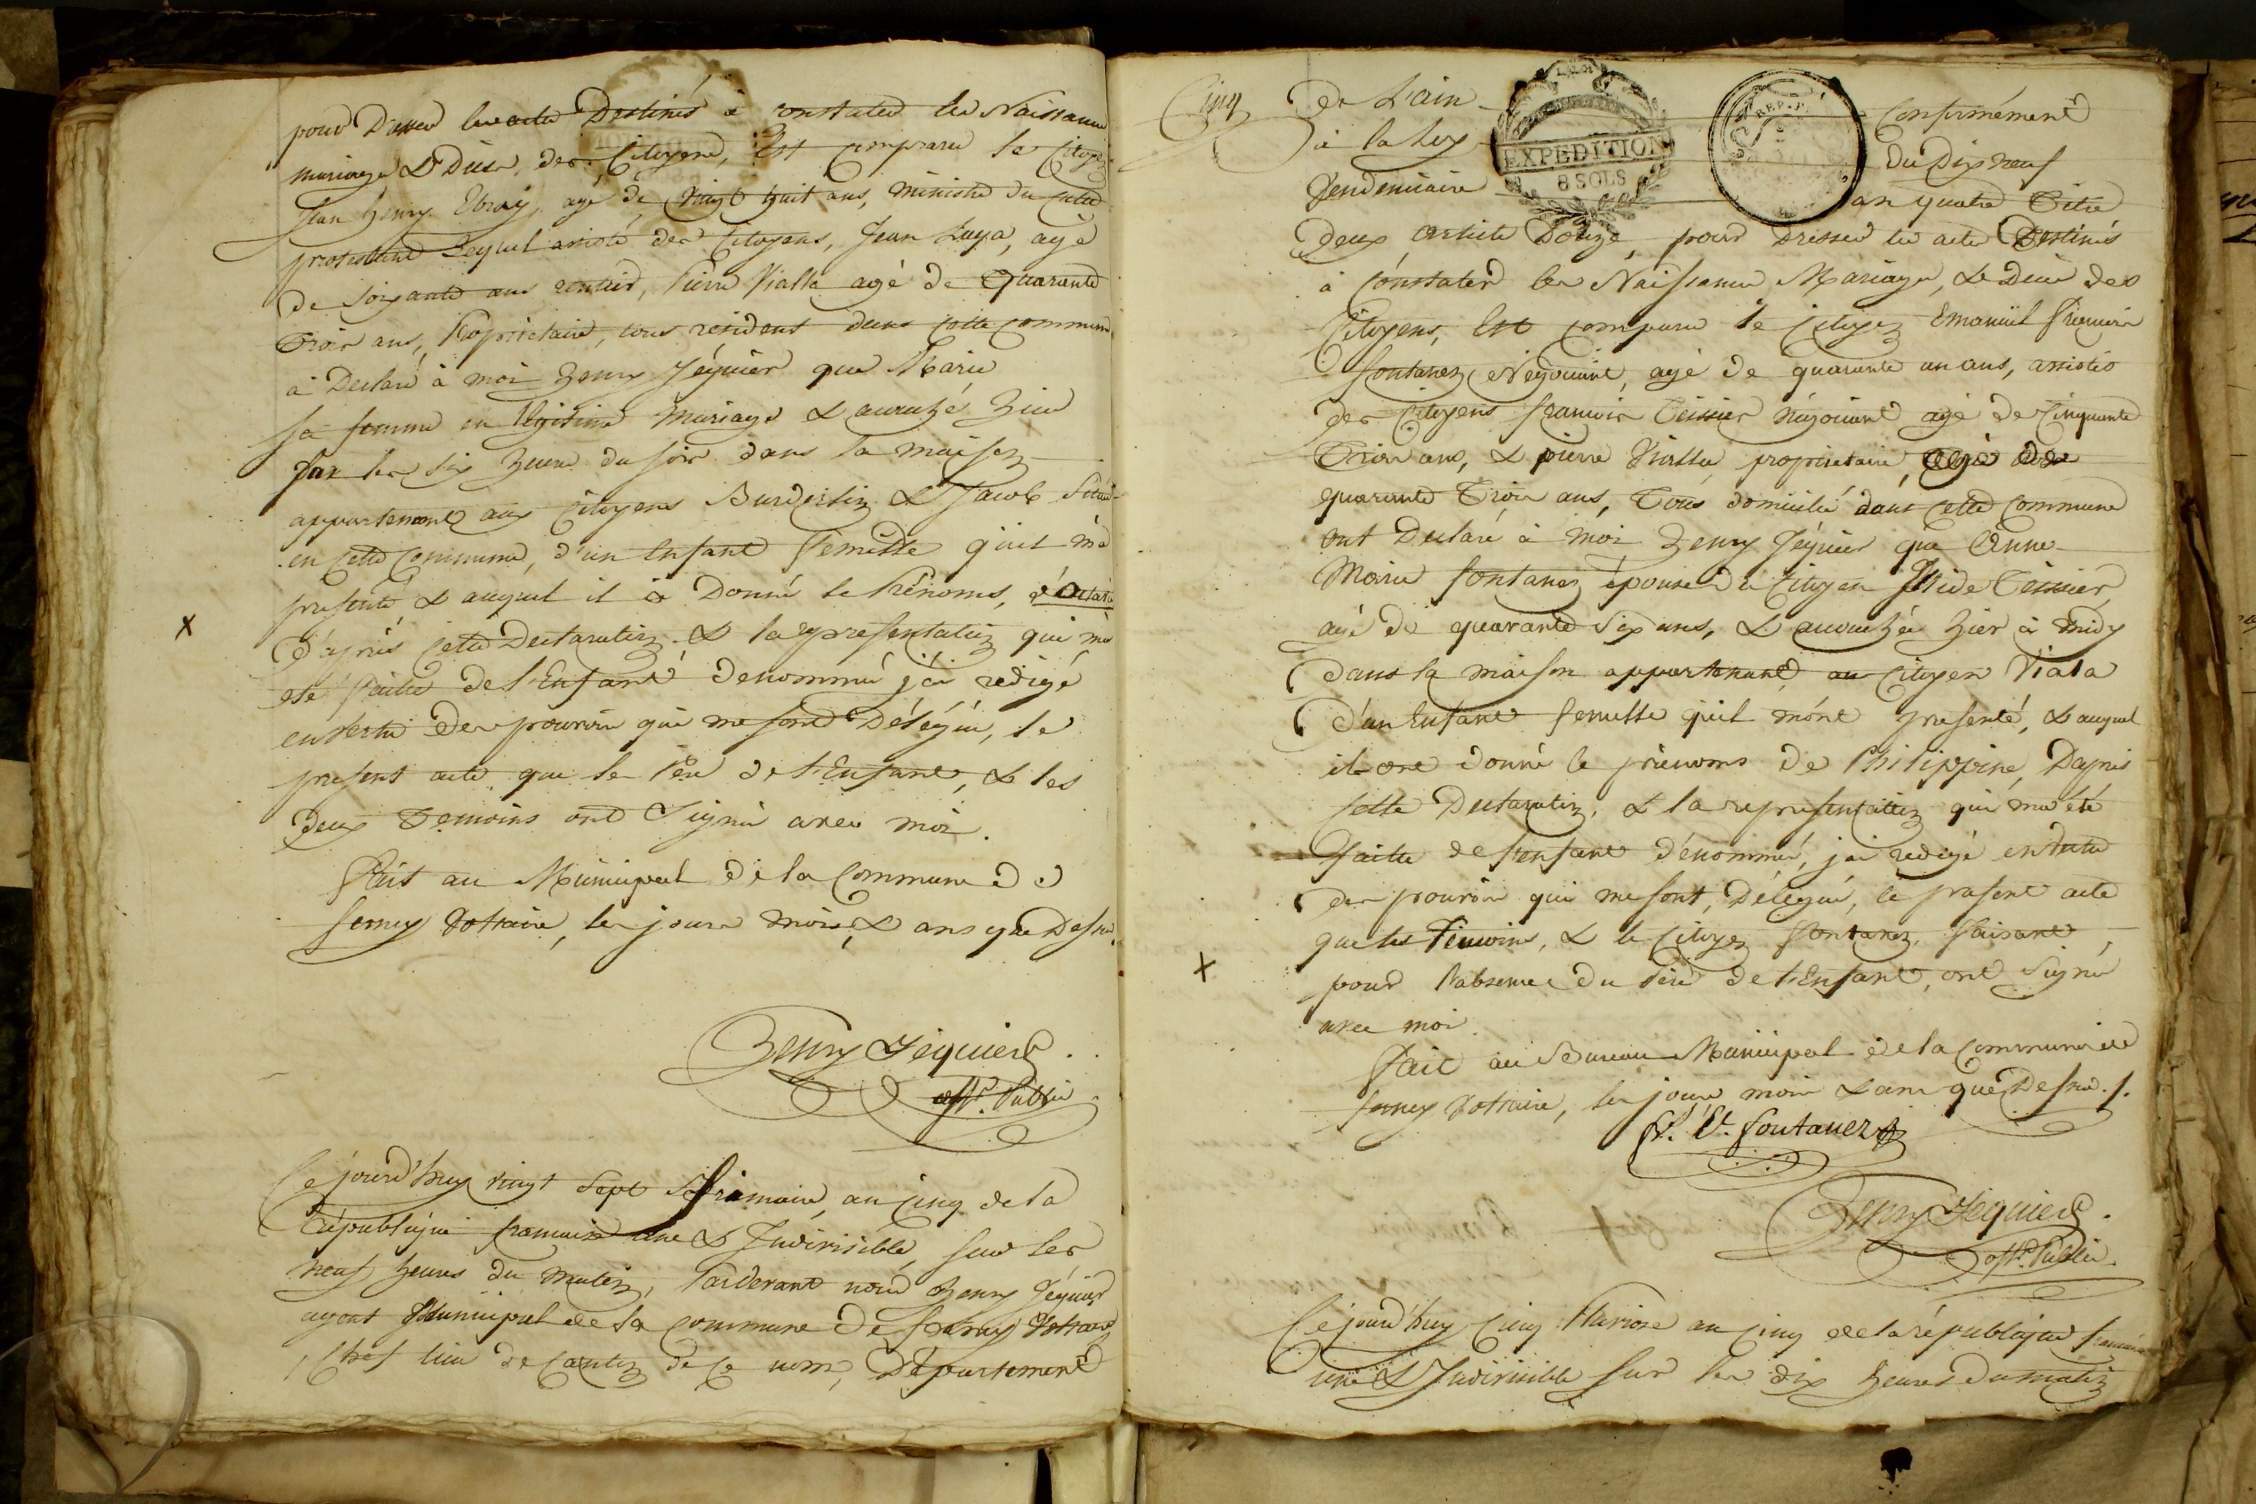 pour Dresser les actes Destinés à constater les Naissance
mariage & Décès, des Citoyens, Est comparu le Citoyen
Jean henry Ebray, agé de Vingt huit ans, ministre du culte
protestant Lequel assisté des Citoyens, Jean Luya, agé
de soixante ans rentier, Pierre Vialla agé de Quarante
Trois ans, Proprietaire, tous résident dans cette commune
à Declaré à moi henry Jéquier que Marie
sa femme en légitime mariage & accouché hier
sur les six heures du soir dans la maison
appartenant aux citoyens Burdeslin & Jacob Située
en cette commune, d'un Enfant femelle qu'il m'a
presenté & auquel il a Donné le Prénoms,
D'après cette Declaration & la representation qui m'a
été faitte de l'Enfant dénommé j'ai redigé
en vertu Des pouvoirs qui me sont Délégués, le
present acte que le Père de l'Enfant, & les
deux Temoins ont Signé avec moi.
Fait au Municipal de la Commune de
ferney Voltaire, les jours mois & ans que Dessus.
Henry Jéquier
off.r Public
Cejourd'huy vingt sept frimaire, an cinq de la
République francaise une & Indivisible, sur les
neuf heures du matin, Pardevant nous henry Jéquier
agent Municipal de la commune de ferney Voltaire
Chef lieu de canton de ce nom, Département
Cinq
De L'ain Conformément
à la Loy Du Dix neuf
Vendemiaire an quatre Titre
EXPEDITION
8 SOLS
REP. F.
Deux article Douze, pour dresser les actes Destinés
à Constater les Naissance Mariage, & Décès des
Citoyens, Est comparu le Citoyen Emanuel francois
fontanez Négociant, agé de quarante un ans, assistés
des Citoyens francois Teissier Négociant agé de Cinquante
Trois ans, & pierre Vialla proprietaire, agé de
quarante Trois ans, Tous domicilié dans cette Commune
ont Declaré à moi henry Jéquier que Anne
Marie fontanes épouse du Citoyen Teissier,
agé de quarante six ans, & accouchée hier à midy
dans la maison appartenant au Citoyen Viala
d'un Enfant femelle qu'il m'ont presenté, & auquel
ils ont donné le prénoms de Philippine, D'après
cette Declaration, & la representation qui ma été
faitte de l'enfant dénommé, j'ai redigé en vertu
des pouvoirs qui me sont, Délégué, le present acte
que les Témoins, & le Citoyen fontanez, faisant
pour l'absence du Père de l'Enfant, ont Signé
avec moi.
Fait au Bureau Municipal de la Commune de
ferney Voltaire, les jours mois & ans que Dessus.
fr. E. fontanez
Henry Jéquier
off.r Public
Cejourd'huy cinq Nivose an cinq de la république francaise
une & Indivisible sur les dix heures du matin